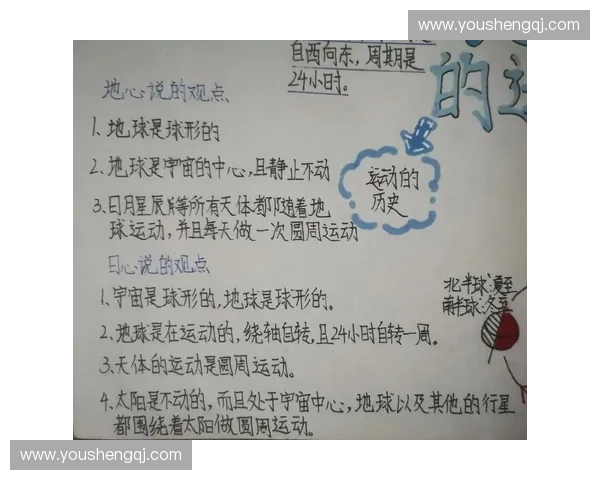 www.youshengqj.com
自西向东，周期是
24小时。
的运
地心说的观点
1、地球是球形的
2、地球是宇宙的中心，且静止不动
3、日月星辰等所有天体都随着地
球运动，并且每天做一次圆周运动
运动的
历史
日心说的观点
1、宇宙是球形的，地球是球形的。
2、地球是在运动的，绕轴自转，且24小时自转一周。
3、天体的运动是圆周运动。
4、太阳是不动的，而且处于宇宙中心，地球以及其他的行星
都围绕着太阳做圆周运动。
北半球：夏至
南半球：冬至
www.youshengqj.com